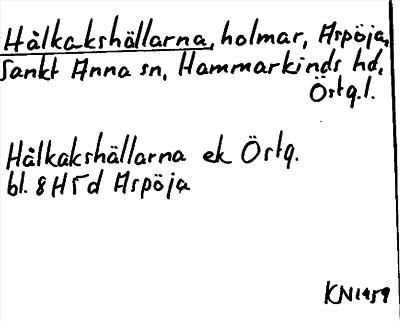 Hålkakshällarna, holmar, Aspöja,
Sankt Anna sn, Hammarkinds hd,
Östg.l.
Hålkakshällarna ek Östg.
bl. 8H5d Aspöja
KN1959